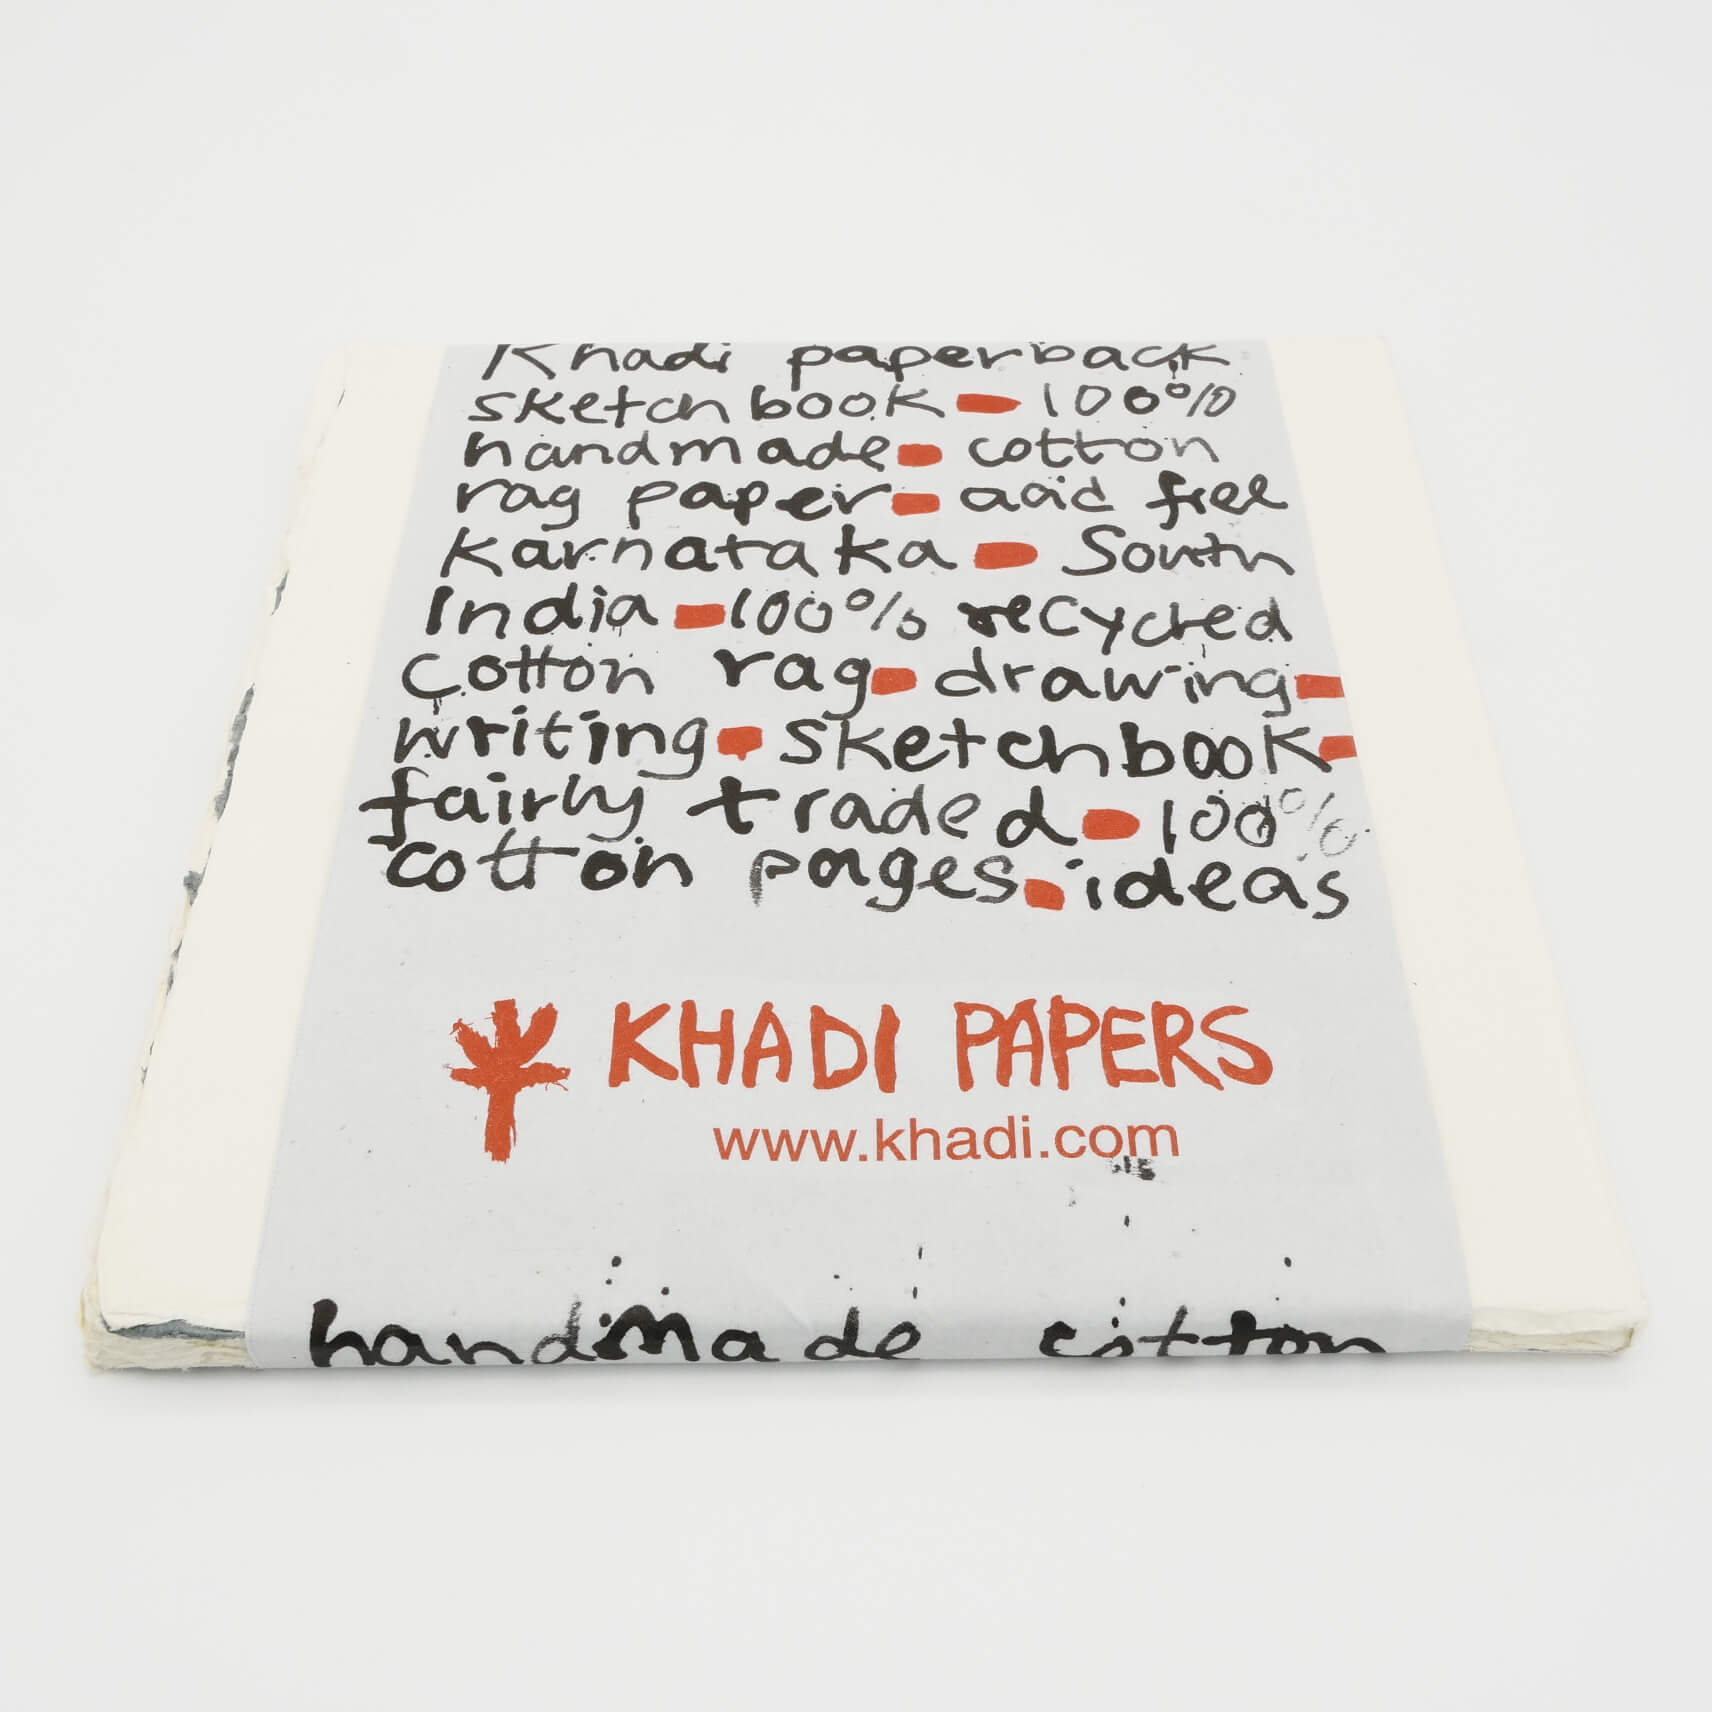 Khadi paperback
sketchbook - 100%
handmade - cotton
rag paper - acid free
Karnataka - South
India - 100% recycled
cotton rag - drawing -
writing - sketchbook -
fairly traded - 100%
cotton pages - ideas
KHADI PAPERS
www.khadi.com
handmade cotton